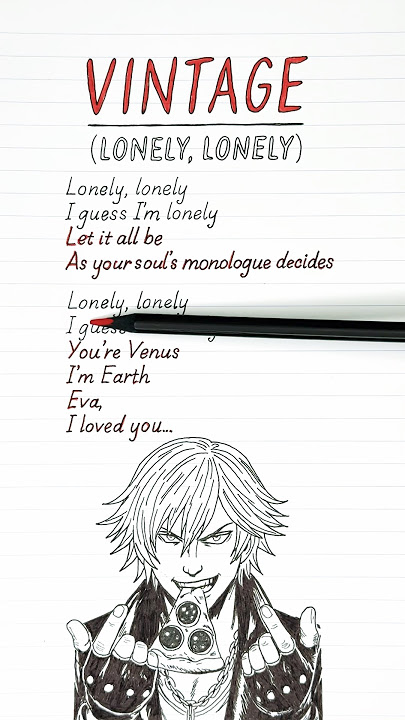 VINTAGE
(LONELY, LONELY)
Lonely, lonely
I guess I'm lonely
Let it all be
As your soul's monologue decides
Lonely, lonely
I guess
You're Venus
I'm Earth
Eva,
I loved you...